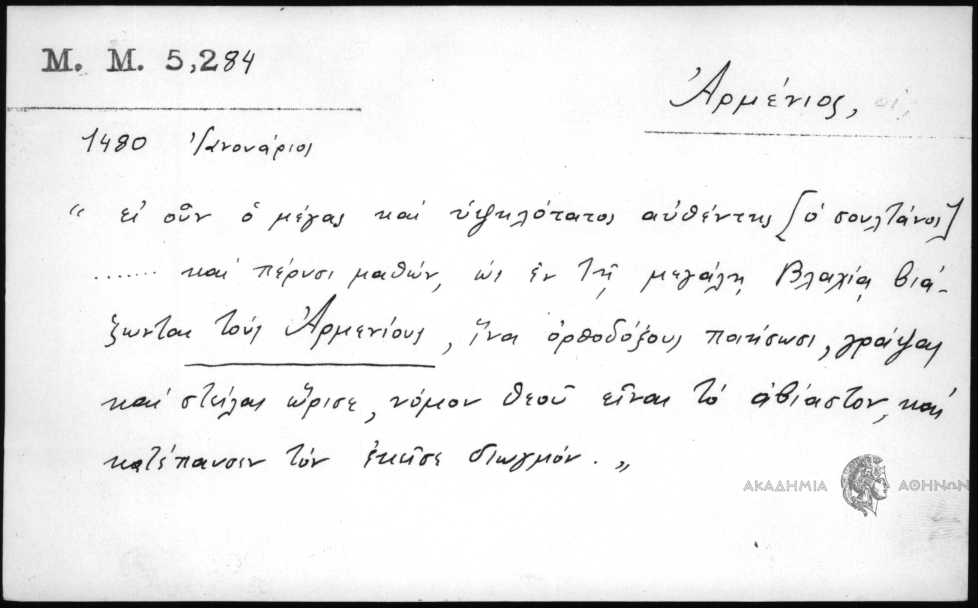 M. M. 5,284
Ἀρμένιος, οἱ,
1480 Ἰανουάριος
“ εἰ οὖν ὁ μέγας καὶ ὑψηλότατος αὐθέντης [ὁ σουλτάνος]
....... καὶ πέρυσι μαθών, ὡς ἐν τῇ μεγάλῃ Βλαχίᾳ βιά-
ζωνται τοὺς Ἀρμενίους, ἵνα ὀρθοδόξους ποιήσωσι, γράψας
καὶ στείλας ὥρισε, νόμον θεοῦ εἶναι τὸ ἀβίαστον, καὶ
κατέπαυσεν τὸν ἐκεῖσε διωγμόν. „
ΑΚΑΔΗΜΙΑ ΑΘΗΝΩΝ